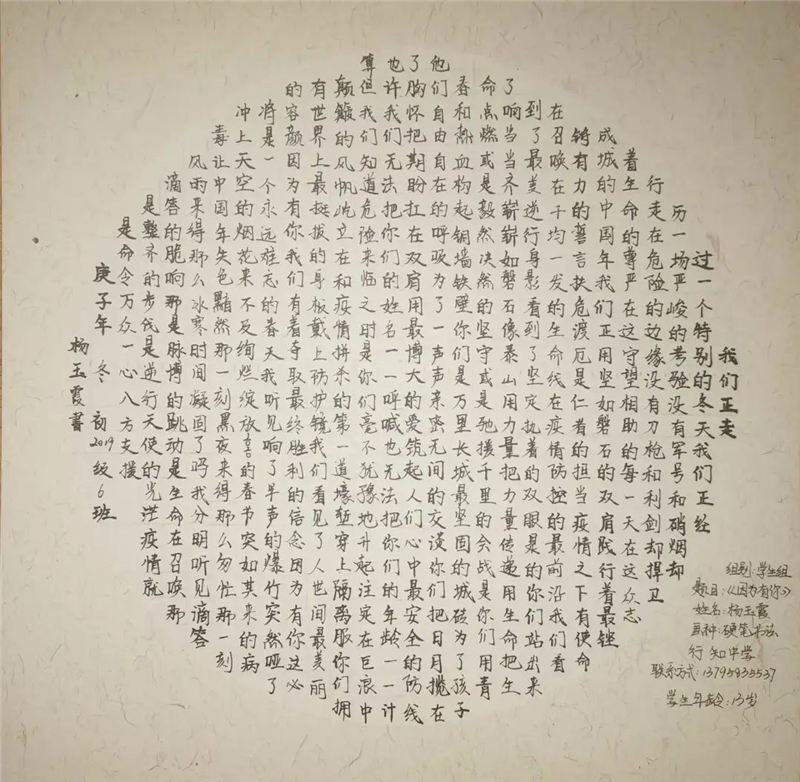 我们正走
过一个特别的冬天我们正经
历一场严峻的考验没有军号和硝烟却
行走在危险的边缘没有刀枪和利剑却捍卫
着生命的尊严在这守望相助的每一天在这众志
成城的中国年我们正用坚如磐石的双肩践行着最铿
锵有力的誓言扶危渡厄是仁者的担当疫情之下有使命
在召唤在千均一发的生命线在疫情防控的最前沿我们看
到了最美逆行身影看到了坚定执着的双眼是的你们站出来
了响当当齐崭崭如磐石像泰山用力量把力量传递用生命把生
命点燃或是毅然决然的坚守或是驰援千里的会战是你们用青
春和热血构起铜墙铁壁你们是万里长城最坚固的城砖为了孩子
他们自由自在的呼吸为了一声声亲密无间的交谈你们把日月揽在
了胸怀把期盼扛在双肩用最博大的爱筑起人们心中最安全的防线
也许我们无法把你们的姓名一一呼喊也无法把你们的年龄一一计
算但我们知道危险来临之时是你们毫不犹豫地升起注定在巨浪中
颠簸的风帆屹立在和疫情拼杀的第一道壕堑穿上隔离服你们拥
有世界上最挺拔的身板戴上防护镜我们看见了人世间最美丽
的容颜因为有你我们有着夺取最终胜利的信念因为有你这必
将是一个永远难忘的春天我听见响了半声的爆竹突然哑了
冲上天空的烟花来不及绚烂绽放的春节突如其来的病
毒让中国年失色黯然那一刻黑夜来得那么匆忙那一刻
风雨来得那么冰寒时间凝固了吗我分明听见滴答
滴答的脆响那是脉搏的跳动是生命在召唤那
是整齐的步伐是逆行天使的光芒疫情就
是命令万众一心八方支援
庚子年 冬 初2019级6班
杨玉霞书
组别:学生组
题目:《因为有你》
姓名:杨玉霞
画种:硬笔书法
行知中学
联系方式:13795835537
学生年龄:13岁